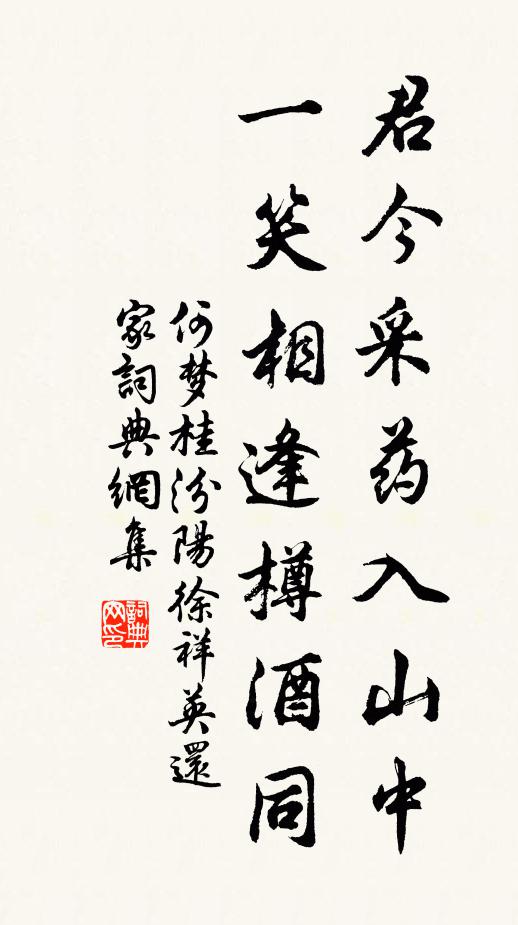 君今采药入山中
一笑相逢樽酒同
何梦桂汾陽徐祥英還
家詞典網集
詞典网印